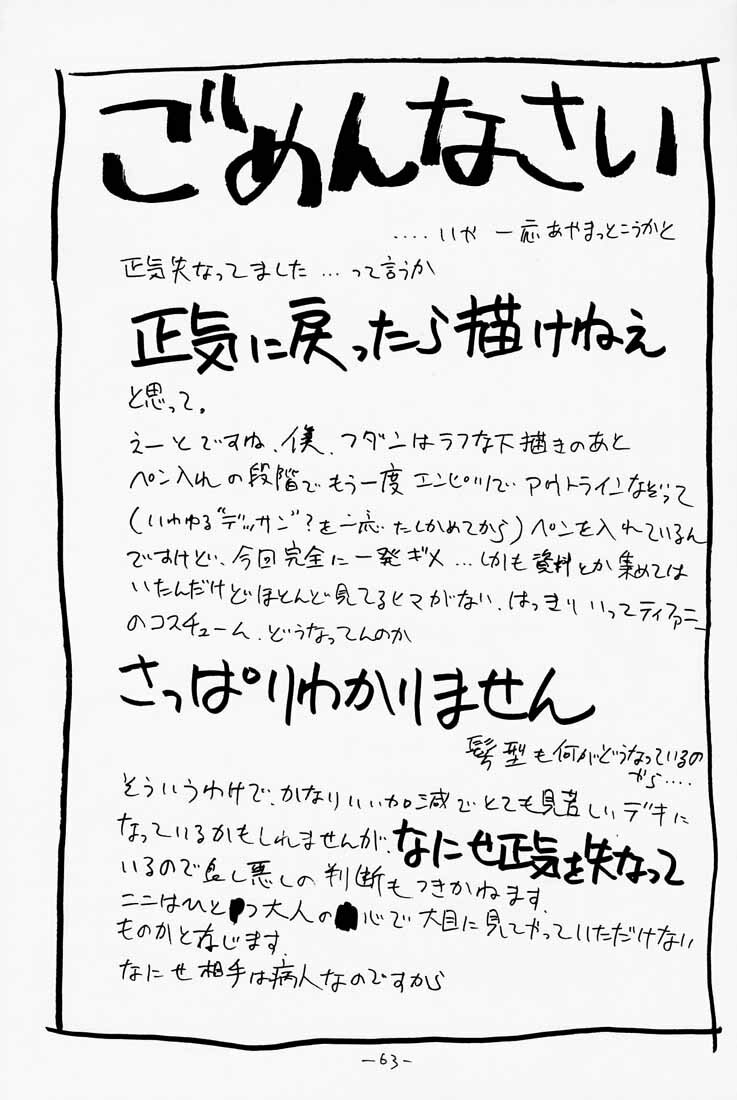 ごめんなさい
‥‥いや 一応あやまっとこうかと
正気失なってました…って言うか
正気に戻ったら描けねえ
と思って。
えーとですね、僕、フダンはラフな下描きのあと
ペン入れの段階でもう一度エンピツでアウトラインなぞって
(いわゆる“デッサン”?を一応たしかめてから)ペンを入れているん
ですけどい、今回完全に一発ギメ…しかも資料とか集めては
いたんだけどほとんど見てるヒマがない、はっきりいってティファニー
のコスチューム、どうなってんのか
さっぱりわかりません
髪型も何がどうなっているの
やら‥‥
そういうわけで、かなりいい加減でとても見苦しいデキに
なっているかもしれませんが、なにせ正気を失なって
いるので良し悪しの判断もつきかねます、
ここはひとつ大人の心で大目に見てやっていただけない
ものかと存じます、
なにせ相手は病人なのですから
-63-